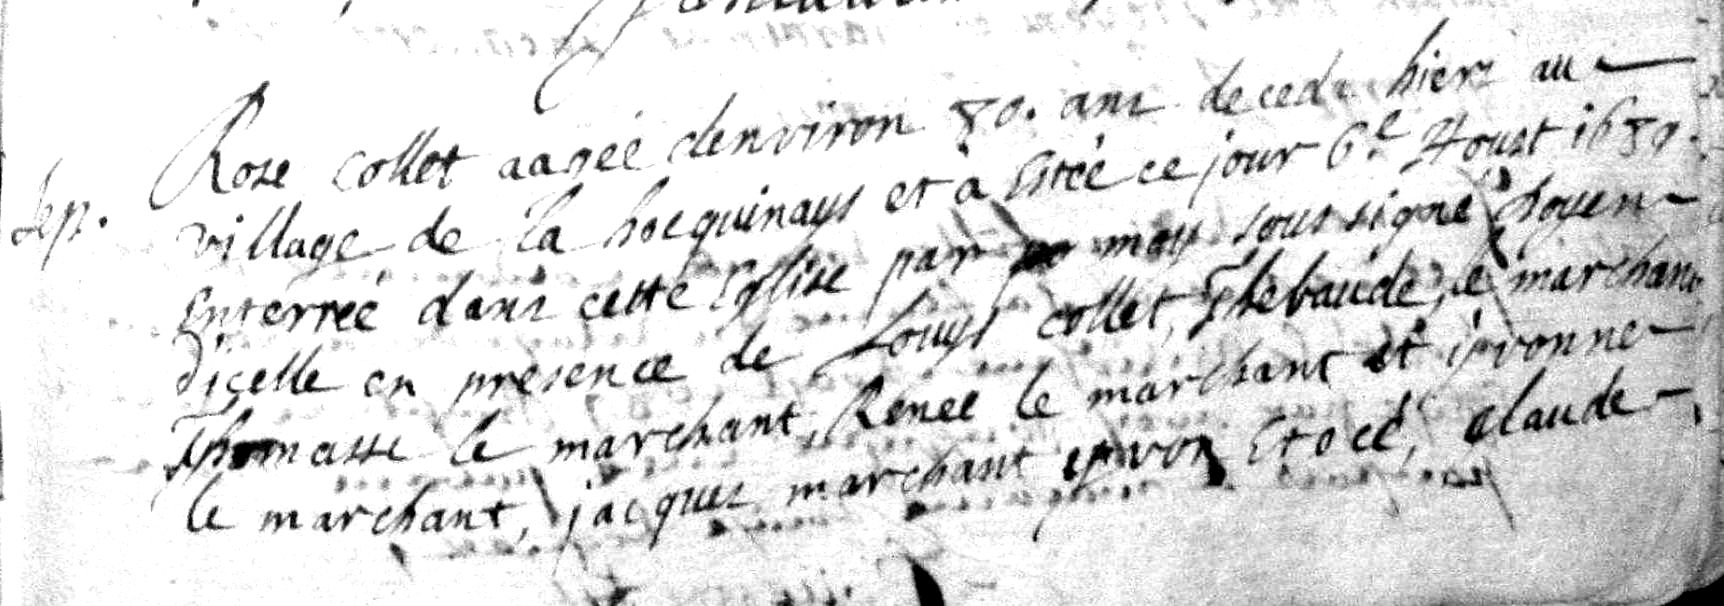 Sep.
Rose collet aagée denviron 80. ans deceda hier au
village de la hocquinays et à Estée ce jour 6e Aoust 1659.
Enterreé dans cette Eglise par moy soussigné doyen
dicelle en presence de Louys collet, Thebaude, le marchant
Thomasse le marchant, Renee le marchant et ipvonne
le marchant, jacques marchant ypvon claude